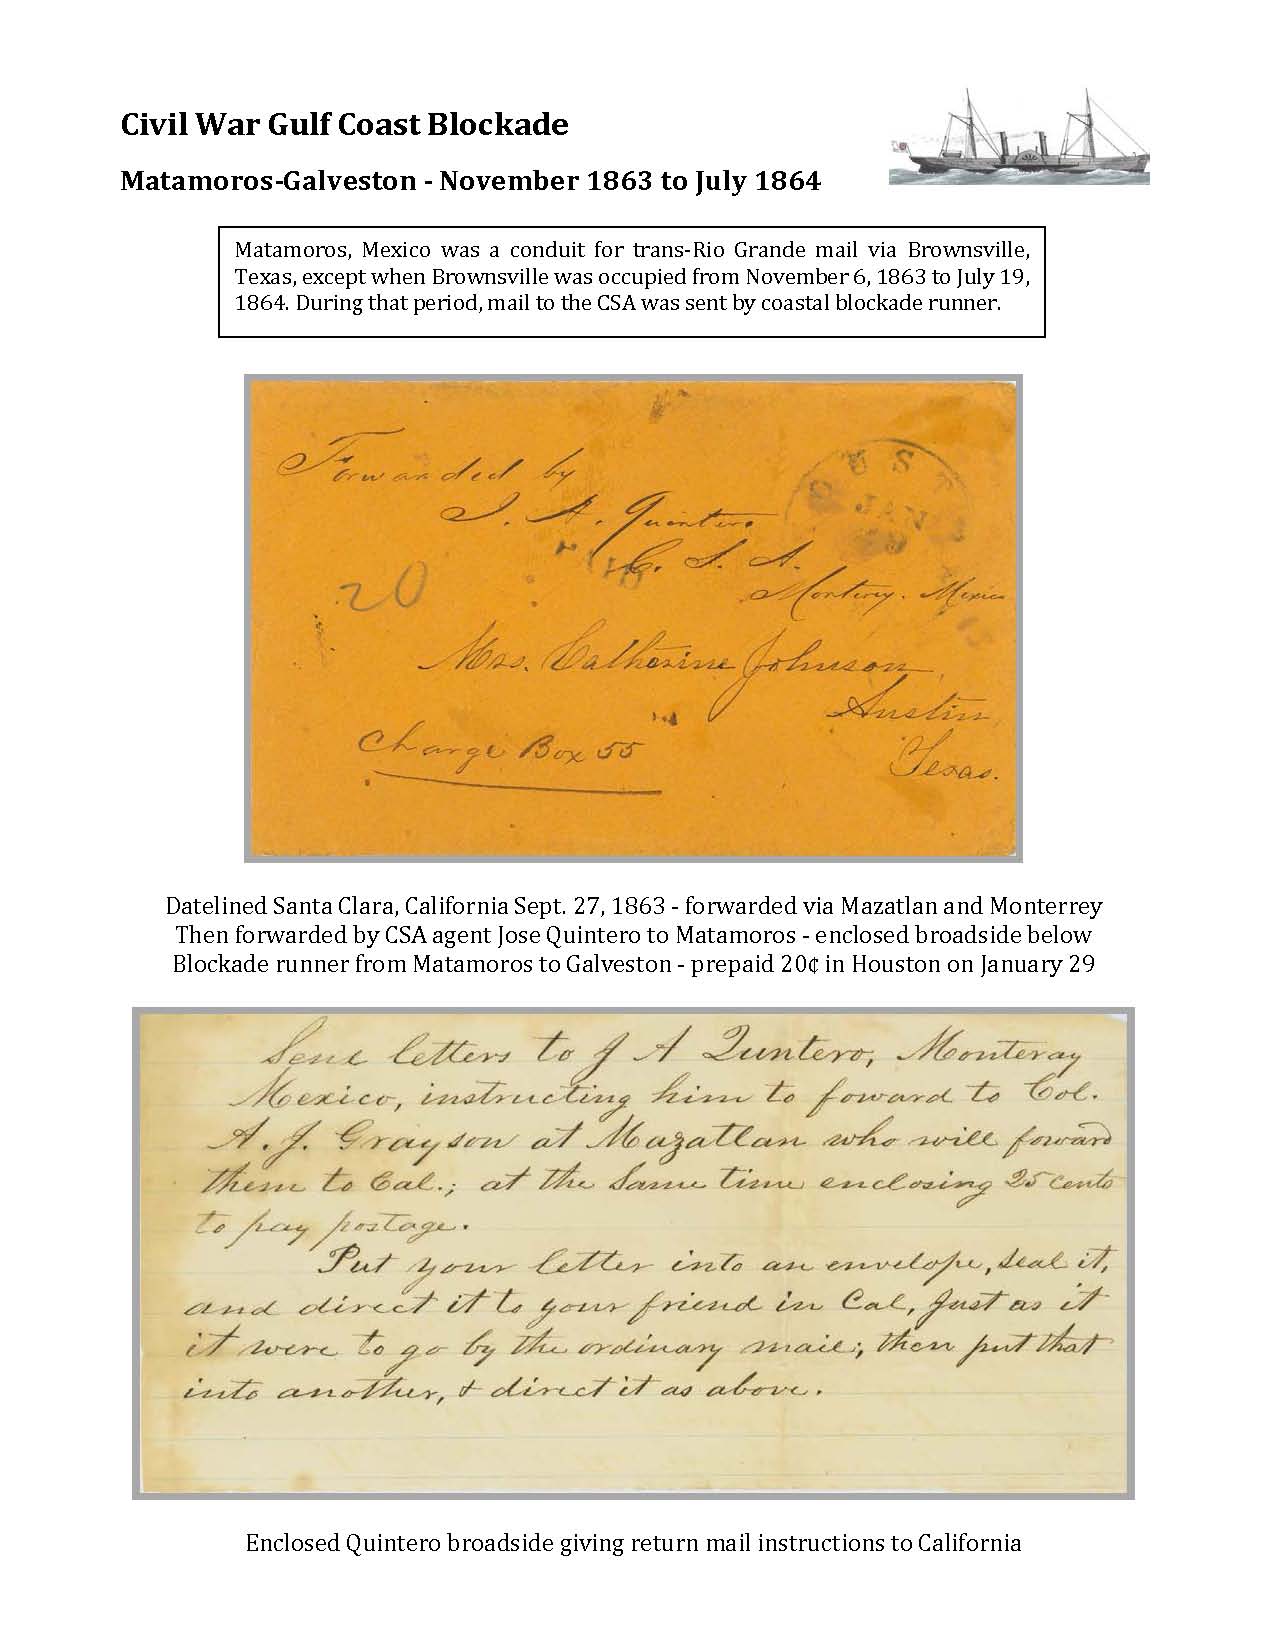 Civil War Gulf Coast Blockade
Matamoros-Galveston - November 1863 to July 1864
Matamoros, Mexico was a conduit for trans-Rio Grande mail via Brownsville,
Texas, except when Brownsville was occupied from November 6, 1863 to July 19,
1864. During that period, mail to the CSA was sent by coastal blockade runner.
Forwarded by
J. A. Quintero
C. S. A.
Monterey. Mexico
20
Mrs. Catherine Johnson,
Austin,
Texas.
Charge Box 55
Datelined Santa Clara, California Sept. 27, 1863 - forwarded via Mazatlan and Monterrey
Then forwarded by CSA agent Jose Quintero to Matamoros - enclosed broadside below
Blockade runner from Matamoros to Galveston - prepaid 20¢ in Houston on January 29
Send letters to J A Quntero, Monteray
Mexico, instructing him to foward to Col.
A. J. Grayson at Mazatlan who will foward
them to Cal.; at the same time enclosing 25 cents
to pay postage.
Put your letter into an envelope, seal it,
and direct it to your friend in Cal, just as it
it were to go by the ordinary mail; then put that
into another, & direct it as above.
Enclosed Quintero broadside giving return mail instructions to California